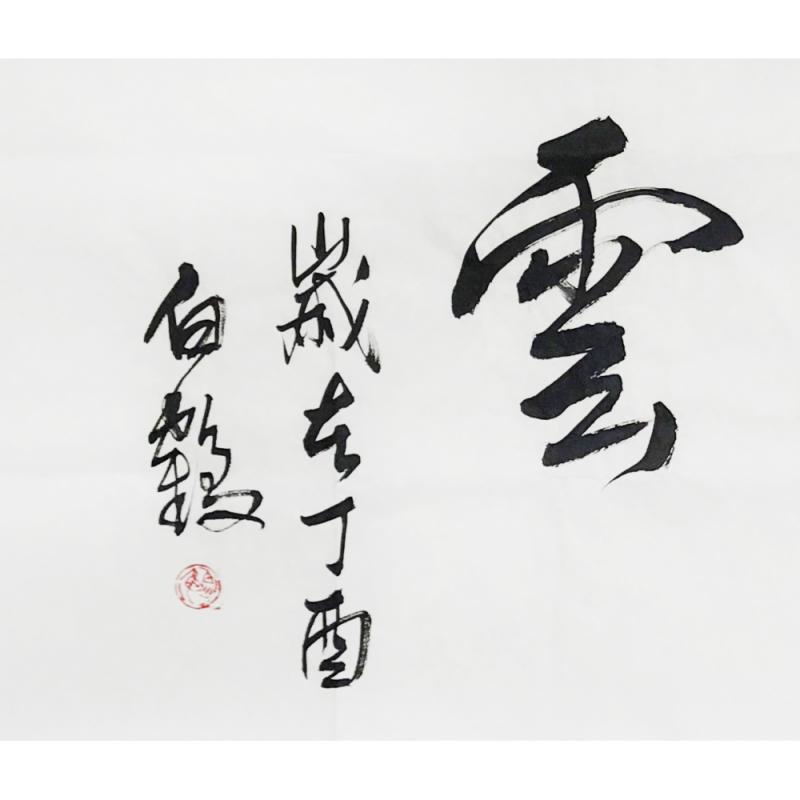 雲
歲在丁酉
白毅